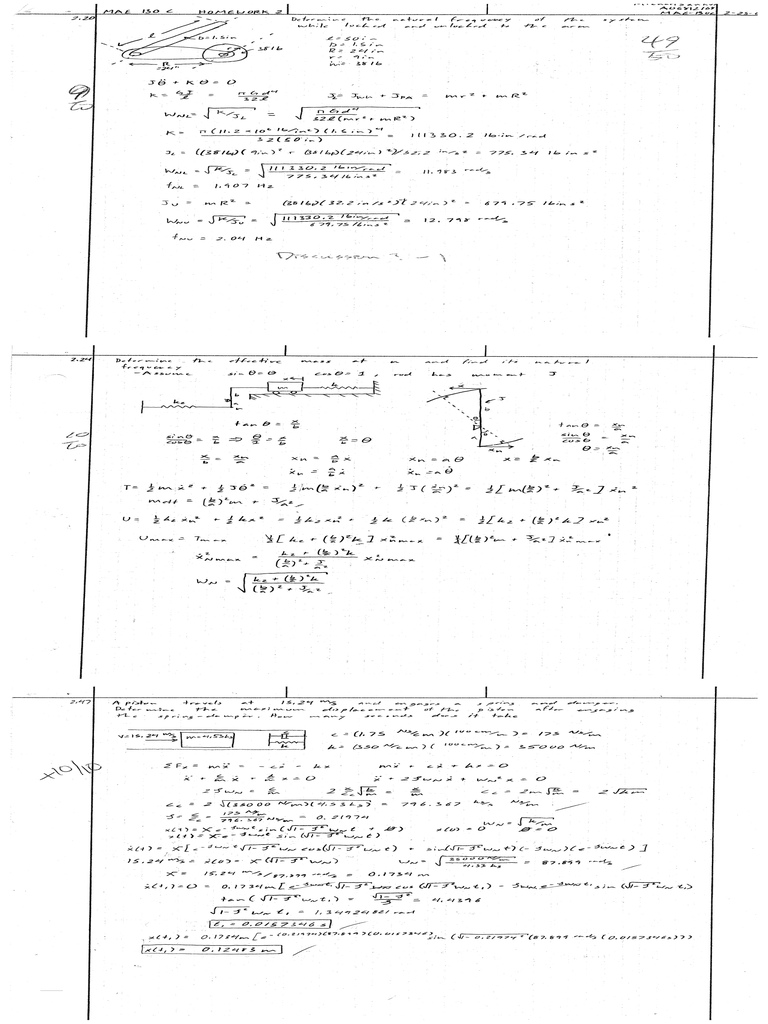 MAE 150 C HOMEWORK 2
MAE 150C 2-23-
2.20 Determine the natural frequency of the system
while locked and unlocked to the arm
49/50
l
D=1.5in
38 lb
R
24"
l = 50 in
D = 1.5 in
R = 24 in
r = 9 in
w = 38 lb
9/10
Jθ̈ + Kθ = 0
K = GJ/l = πGd⁴/32l
J = Jwh + JPA = mr² + mR²
WNL = √(K/JL) = √(πGd⁴/32l(mr² + mR²))
K = π(11.2×10⁶ lb/in²)(1.5in)⁴/32(50in) = 111330.2 lb in/rad
JL = ((38lb)(9in)² + (38lb)(24in)²)/32.2 in/s² = 775.34 lb in s²
WNL = √(K/JL) = √(111330.2 lb in/rad / 775.34 lb in s²) = 11.983 rad/s
fNL = 1.907 Hz
JU = mR² = (38 lb)(32.2 in/s²)(24in)² = 679.75 lb in s²
WNU = √(K/JU) = √(111330.2 lb in/rad / 679.75 lb in s²) = 12.798 rad/s
fNU = 2.04 Hz
Discussion ? -1
2.24 Determine the effective mass at n and find its natural
frequency
-Assume sinθ=θ cosθ=1, rod has moment J
m k k₂ a b
10/10
tanθ = x/b
sinθ/cosθ = x/b ⇒ θ/1 = x/b x/b = θ
tanθ = xn/a
sinθ/cosθ = xn/a
θ = xn/a
x/b = xn/a xn = a/b x xn = aθ x = b/a xn
ẋn = a/b ẋ ẋn = aθ̇
T = ½mẋ² + ½Jθ̇² = ½m(b/a ẋn)² + ½J(ẋn/a)² = ½[m(b/a)² + J/a²]ẋn²
meff = (b/a)²m + J/a²
U = ½k₂xn² + ½kx² = ½k₂xn² + ½k(b/a xn)² = ½[k₂ + (b/a)²k]xn²
Umax = Tmax ½[k₂ + (b/a)²k]x²nmax = ½[(b/a)²m + J/a²]ẋ²nmax
ẋ²Nmax = (k₂ + (b/a)²k)/((b/a)² + J/a²) x²Nmax
WN = √((k₂ + (b/a)²k)/((b/a)² + J/a²))
2.47 A piston travels at 15.24 m/s and engages a spring and damper.
Determine the maximum displacement of the piston after engaging
the spring-damper. How many seconds does it take
V=15.24 m/s m=4.53kg
c = (1.75 Ns/cm)(100cm/m) = 175 N s/m
k = (350 N/cm)(100cm/m) = 35000 N/m
+10/10
ΣFx = mẍ = -cẋ - kx mẍ + cẋ + kx = 0
ẍ + c/m ẋ + k/m x = 0 ẍ + 2ζWNẋ + WN²x = 0
2ζWN = c/m 2 c/cc √(k/m) = c/m cc = 2m√(k/m) = 2√(km)
cc = 2√((35000 N/m)(4.53kg)) = 796.367 kg/s N s/m
ζ = c/cc = 175 Ns/m / 796.367 Ns/m = 0.21974 WN = √(k/m)
x(t) = Xe^(-ζWNt) sin(√(1-ζ²)WNt + Ø) x(0) = 0 Ø = 0
x(t) = Xe^(-ζWNt) sin(√(1-ζ²)WNt)
ẋ(t) = X[e^(-ζWNt)√(1-ζ²)WN cos(√(1-ζ²)WNt) + sin(√(1-ζ²)WNt)(-ζWN)(e^(-ζWNt))]
15.24 m/s = ẋ(0) = X(√(1-ζ²)WN) WN = √(35000 N/m / 4.53 kg) = 87.899 rad/s
X = 15.24 m/s / 87.899 rad/s = 0.1734 m
ẋ(t₁) = 0 = 0.1734m[e^(-ζWNt₁)√(1-ζ²)WN cos(√(1-ζ²)WNt₁) - ζWN e^(-ζWNt₁) sin(√(1-ζ²)WNt₁)
tan(√(1-ζ²)WNt₁) = √(1-ζ²)/ζ = 4.4396
√(1-ζ²)WNt₁ = 1.34924861 rad
t₁ = 0.0157346 s
x(t₁) = 0.1734m[e^(-(0.21974)(87.899)(0.0157346)) sin(√(1-0.21974²)(87.899 rad/s)(0.0157346s))]
x(t₁) = 0.12483 m